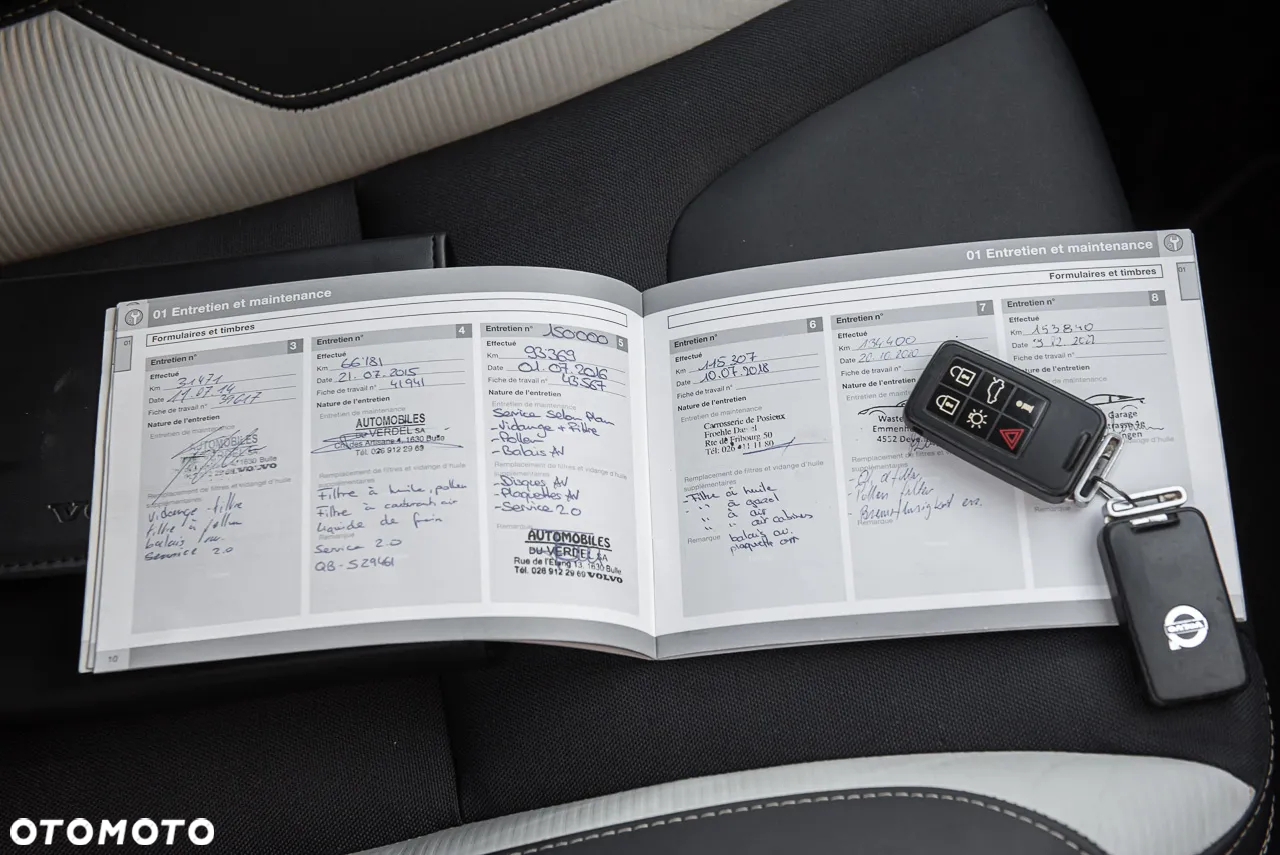 01 Entretien et maintenance
Formulaires et timbres
01
Entretien n° 3
Effectué
Km 31471
Date 11.07.14
Fiche de travail n° 39617
Nature de l'entretien
Entretien de maintenance
AUTOMOBILES
VOLVO
Remplacement de filtres et vidange d'huile
supplémentaires
Vidange + filtre
filtre à pollen
balais
Service 2.0
Entretien n° 4
Effectué
Km 66'181
Date 21.07.2015
Fiche de travail n° 41941
Nature de l'entretien
Entretien de maintenance
AUTOMOBILES
DU VERDEL SA
1630 Bulle
Tél. 026 912 29 69
Remplacement de filtres et vidange d'huile
supplémentaires
Filtre à huile, pollen
Filtre à carburant, air
liquide de frein
Service 2.0
QB-S29461
Entretien n° 150000 5
Effectué
Km 93369
Date 01.07.2016
Fiche de travail n° 43567
Nature de l'entretien
Entretien de maintenance
Service selon plan
-Vidange + Filtre
-Pollen
-Balais AV
Remplacement de filtres et vidange d'huile
supplémentaires
-Disques AV
-Plaquettes AV
-Service 2.0
Remarque
AUTOMOBILES
DU VERDEL SA
Rue de l'Etang 13, 1630 Bulle
Tél. 026 912 29 69 VOLVO
10
01 Entretien et maintenance
Formulaires et timbres
01
Entretien n° 6
Effectué
Km 115'307
Date 10.07.2018
Fiche de travail n°
Nature de l'entretien
Entretien de maintenance
Carrosserie de Posieux
Froehle Daniel
Rte de Fribourg 50
Tél: 026 411 11 80
Remplacement de filtres et vidange d'huile
supplémentaires
-Filtre à huile
" à gazol
" à air
" air cabines
Remarque balais av.
plaquette arr
Entretien n° 7
Effectué
Km 134400
Date 20.10.2020
Fiche de travail n°
Nature de l'entretien
Entretien de maintenance
4552
Remplacement de filtres et vidange d'huile
supplémentaires
- Pollen filter
- Bremsflüssigkeit ers.
Remarque
Entretien n° 8
Effectué
Km 153840
Fiche de travail n°
Garage
VOLVO
OTOMOTO